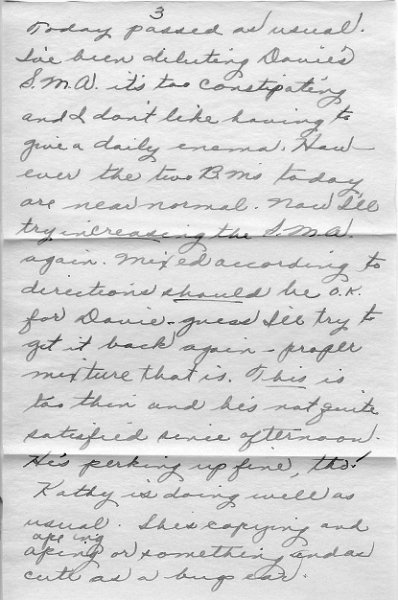 3
Today passed as usual.
I've been diluting Davie's
S.M.A. it's too constipating
and I don't like having to
give a daily enema. How-
ever the two B.M.s today
are near normal. Now I'll
try increasing the S.M.A.
again. Mixed according to
directions should be O.K.
for Davie - guess I'll try to
get it back again - proper
mixture that is. This is
too thin and he's not quite
satisfied since afternoon.
He's perking up fine, tho!
Kathy is doing well as
usual. She's copying and
apeing
aping or something and as
cute as a bug ear.